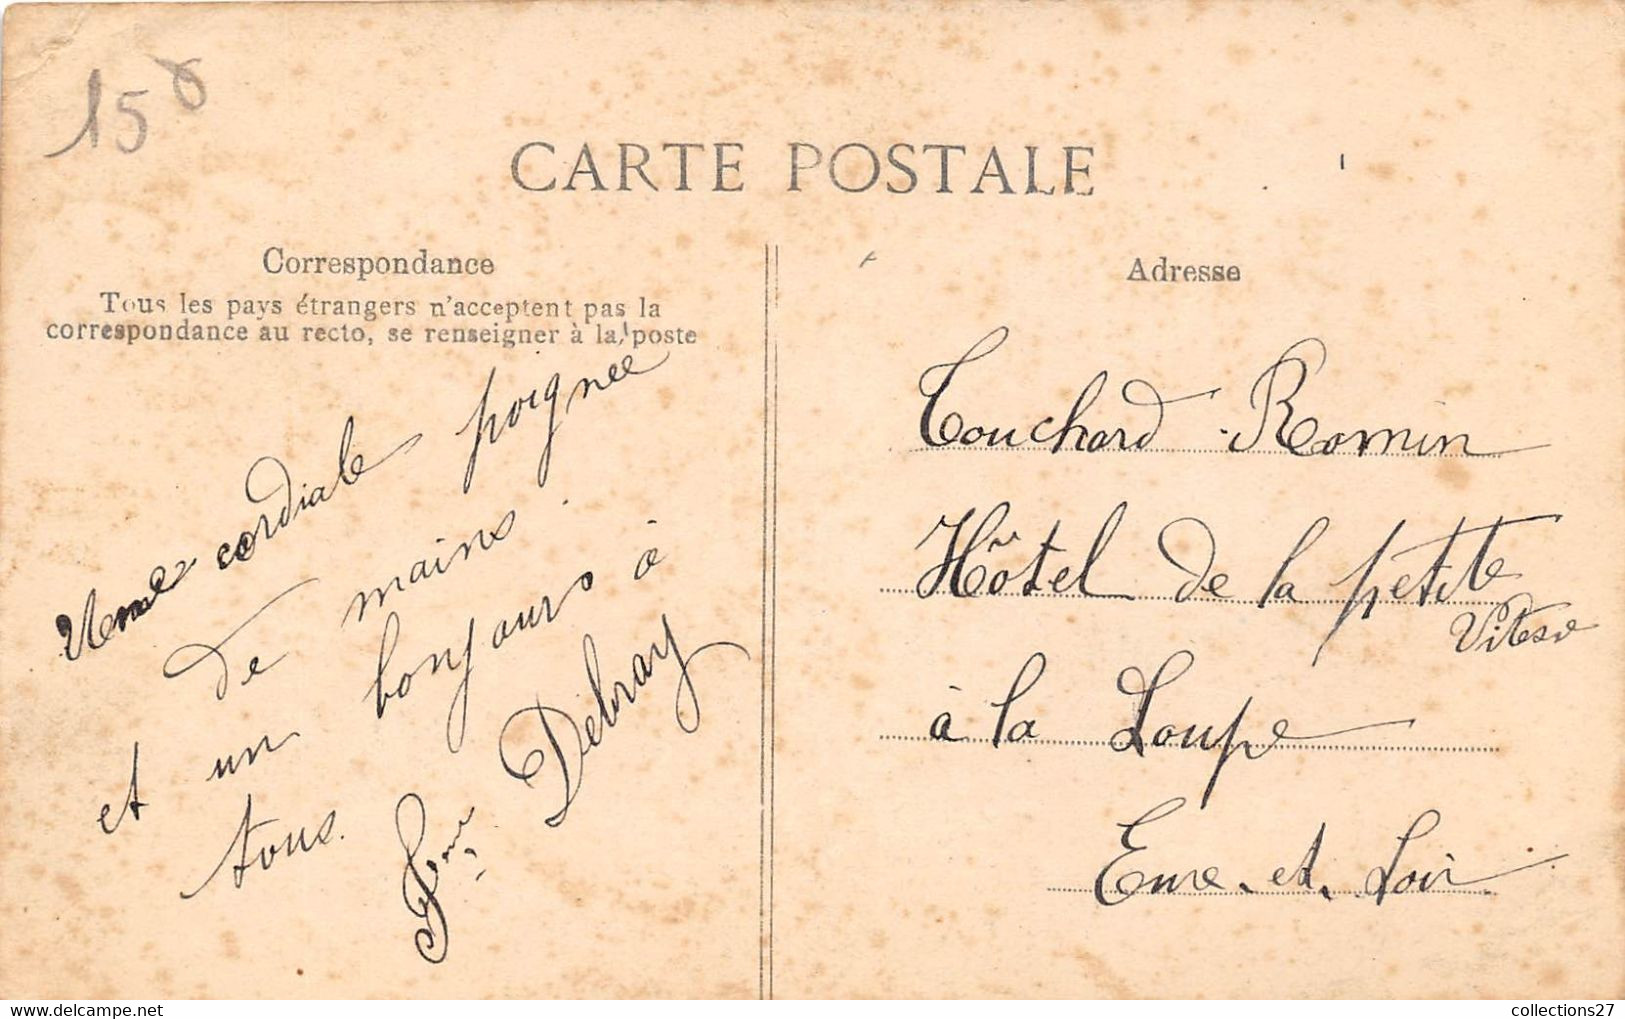 150
CARTE POSTALE
Correspondance
Tous les pays étrangers n'acceptent pas la
correspondance au recto, se renseigner à la poste
Une cordiale poignée
de mains.
et un bonjours à
tous.
Debray
Adresse
Touchard-Romin
Hôtel de la petite
Vitesse
à la Loupe
Eure-et-Loir
collections27